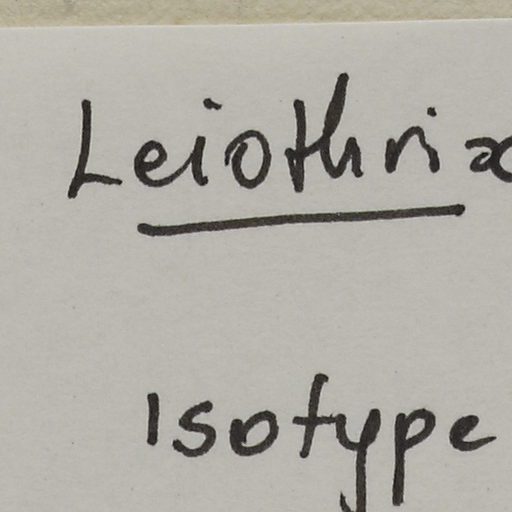 Leiothrix
Isotype